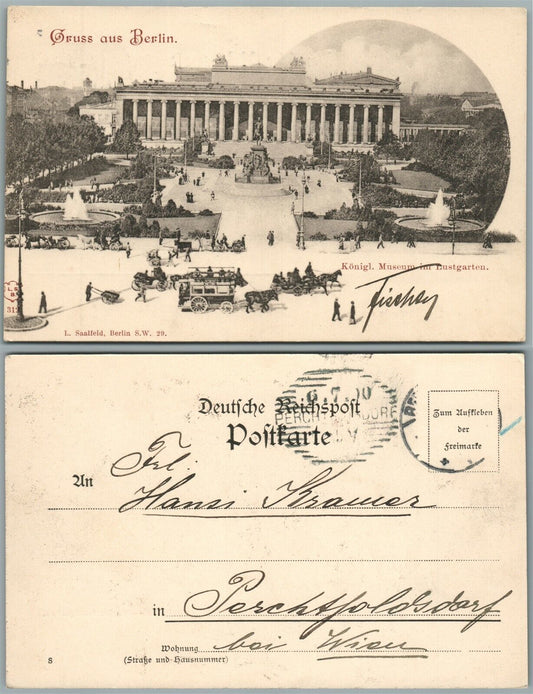 Gruss aus Berlin.
Königl. Museum im Lustgarten.
Fischer
312
L. Saalfeld, Berlin S.W. 29.
6.7.00
PERCHTOLDSDORF
Deutsche Reichspost
Postkarte
Zum Aufkleben
der
Freimarke
An
Frl.
Hansi Kramer
in
Perchtholdsdorf
Wohnung
bei Wien
(Straße und Hausnummer)
S